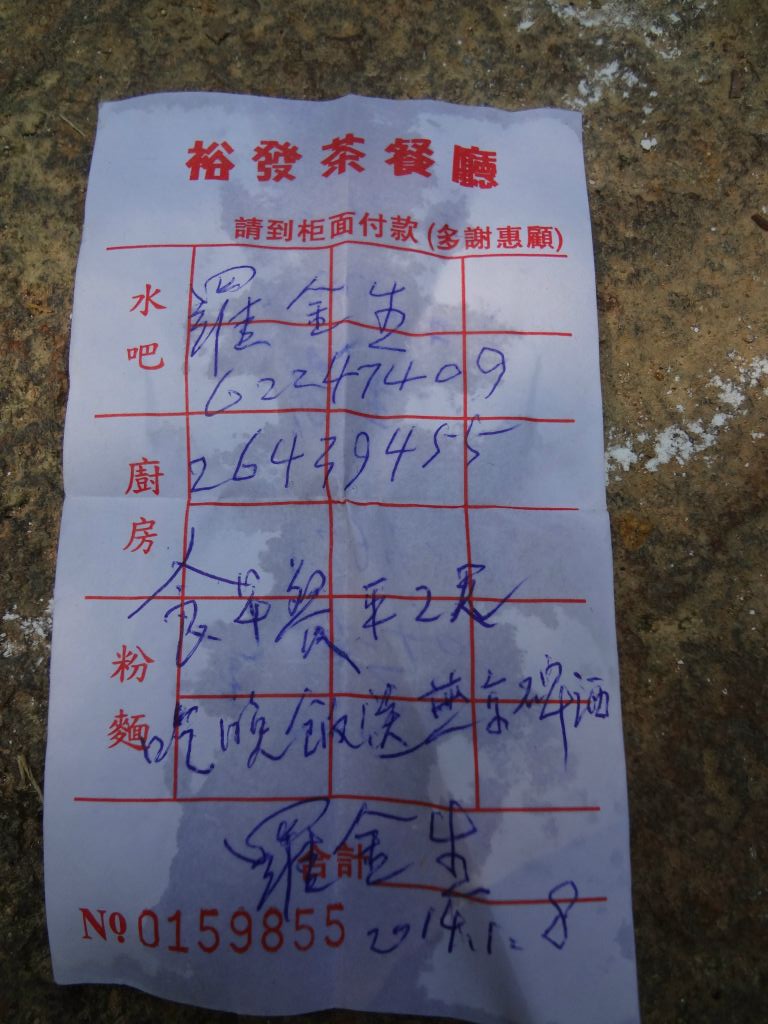 裕發茶餐廳
請到柜面付款(多謝惠顧)
水吧
羅金生
62247409
廚房
26439455
食早餐平2元
粉麵
吃晚飯送燕京啤酒
羅金生
合計
No 0159855
2014.1.8